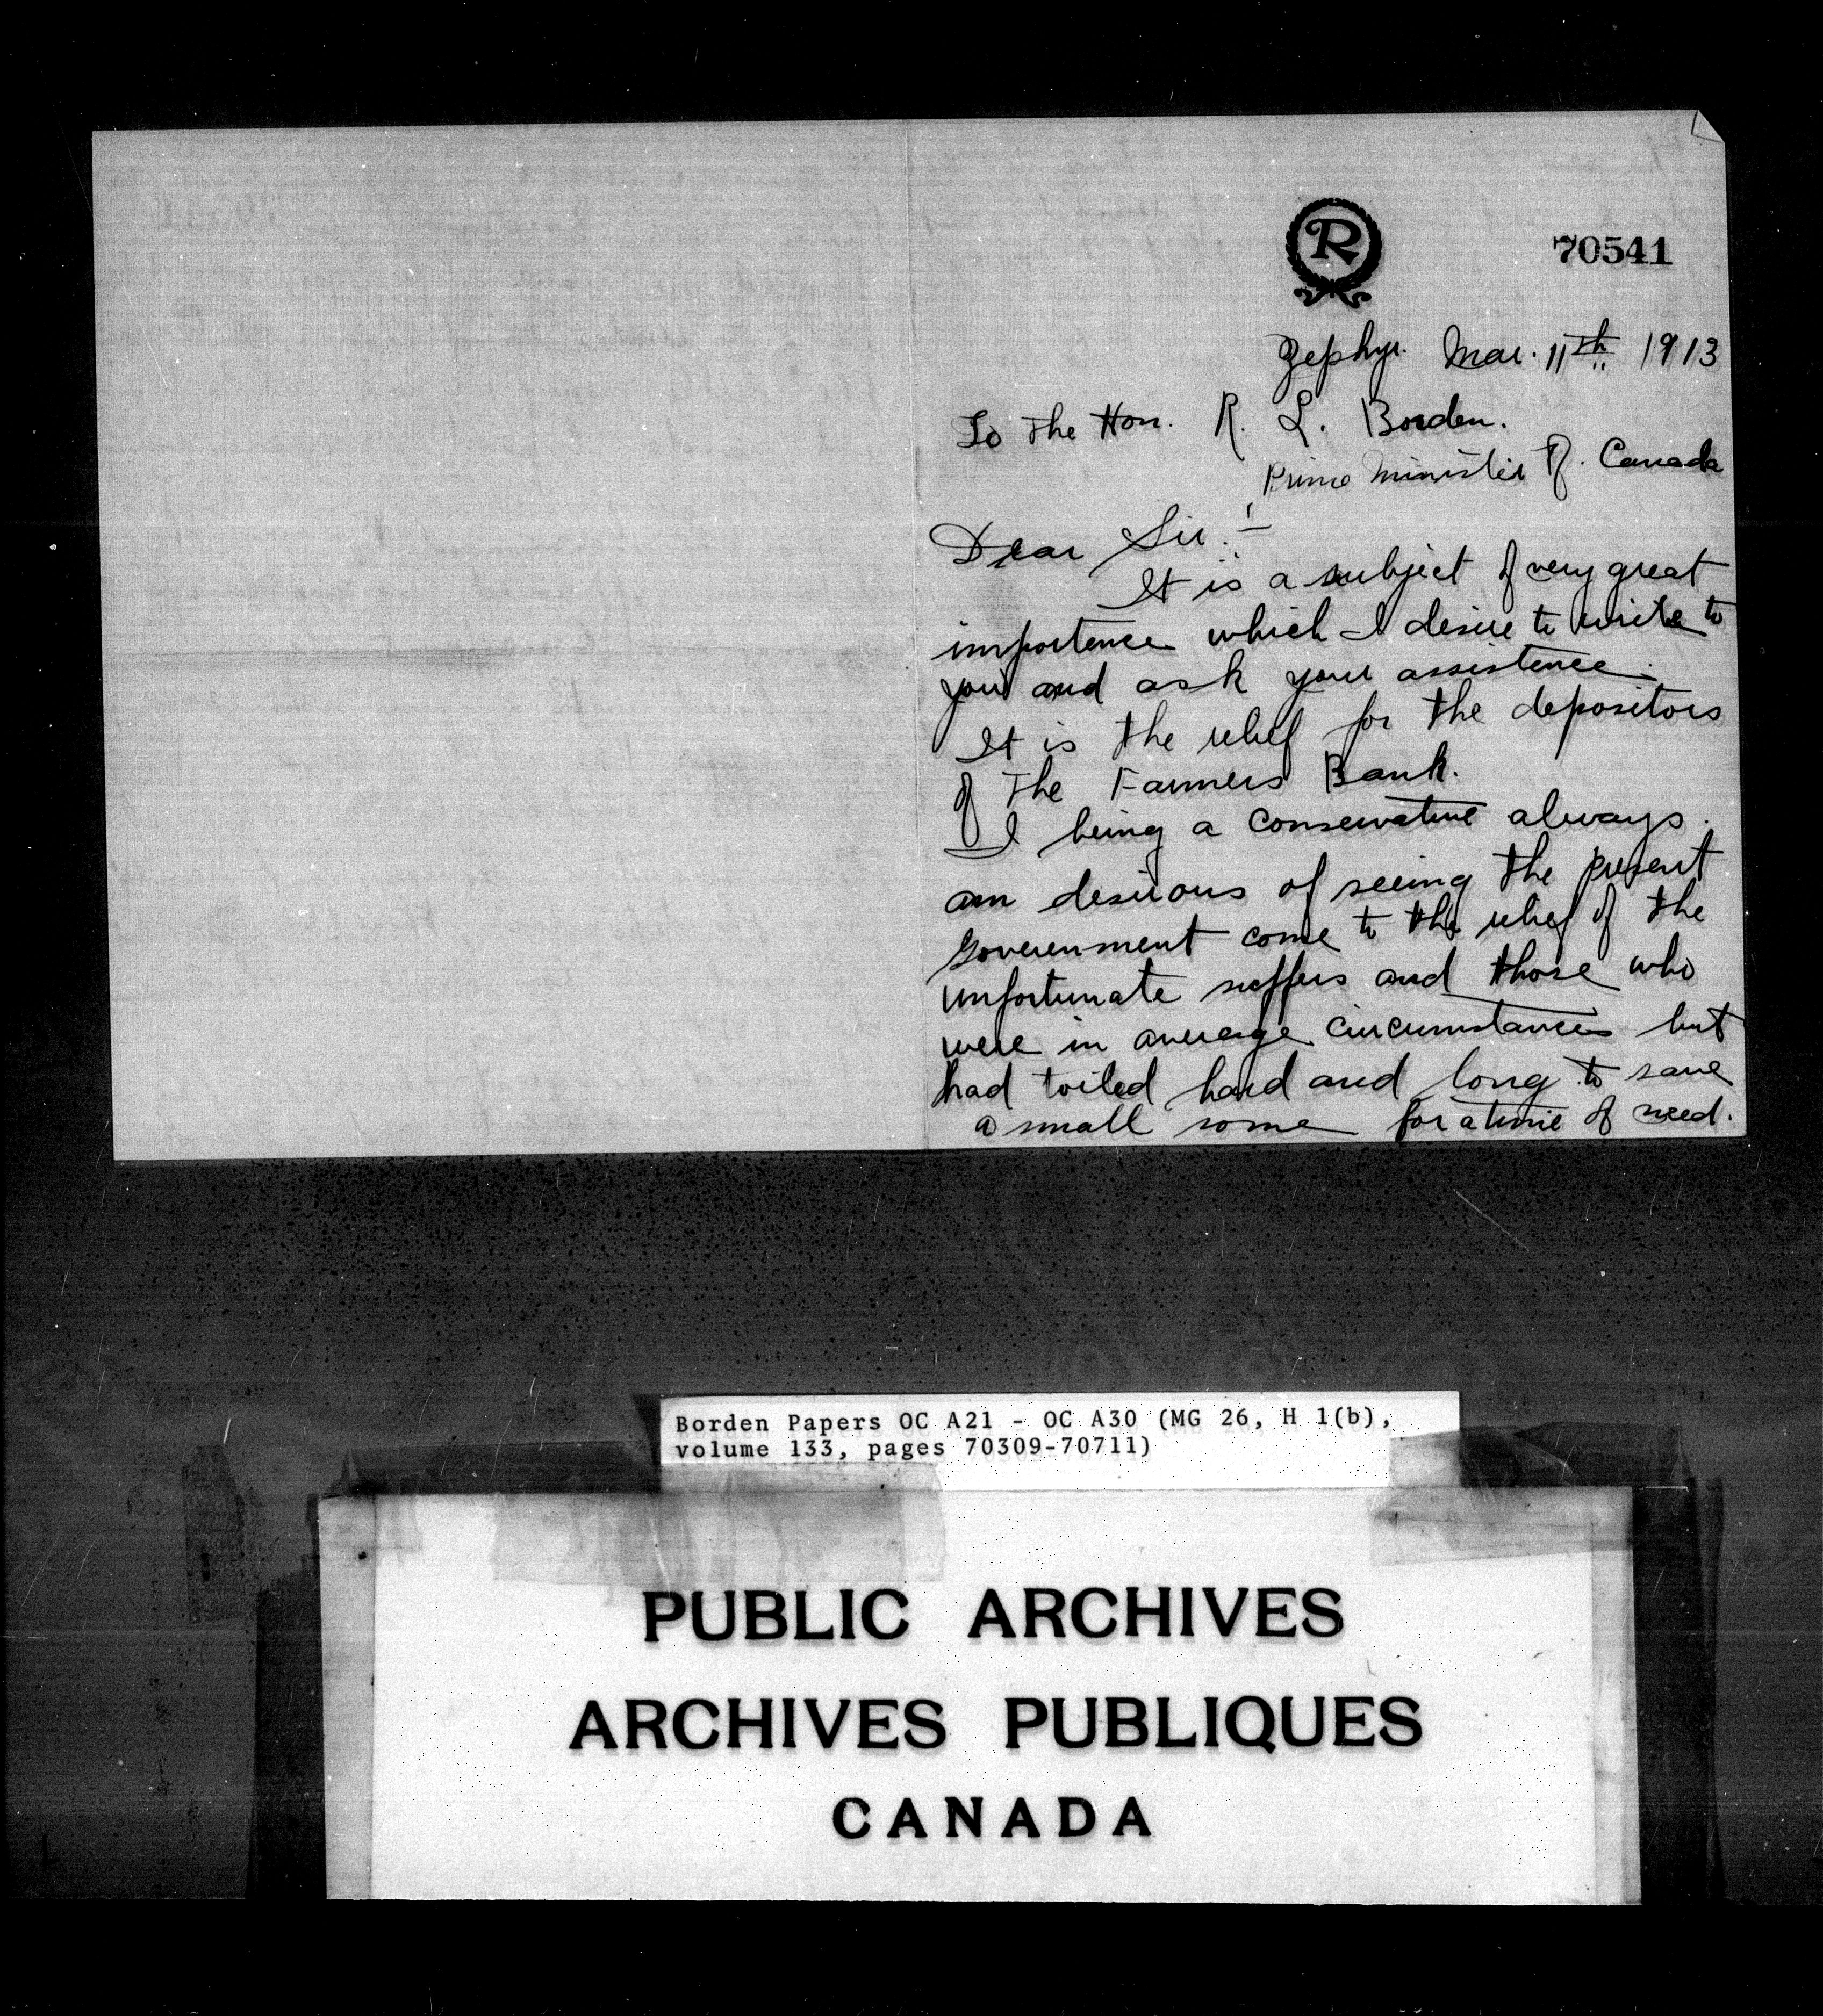 R
70541
Zephyr. Mar. 11th 1913
To The Hon. R. L. Borden.
Prime Minister of. Canada
Dear Sir:-
It is a subject of very great
importence which I desire to write to
you and ask your assistence.
It is the relief for the depositors
of The Farmers Bank.
I being a Conservative always.
am desirous of seeing the present
Goverenment come to the relief of the
unfortunate suffers and those who
were in average circumstances but
had toiled hard and long to save
a small some for a time of need.
Borden Papers OC A21 - OC A30 (MG 26, H 1(b),
volume 133, pages 70309-70711)
PUBLIC ARCHIVES
ARCHIVES PUBLIQUES
CANADA